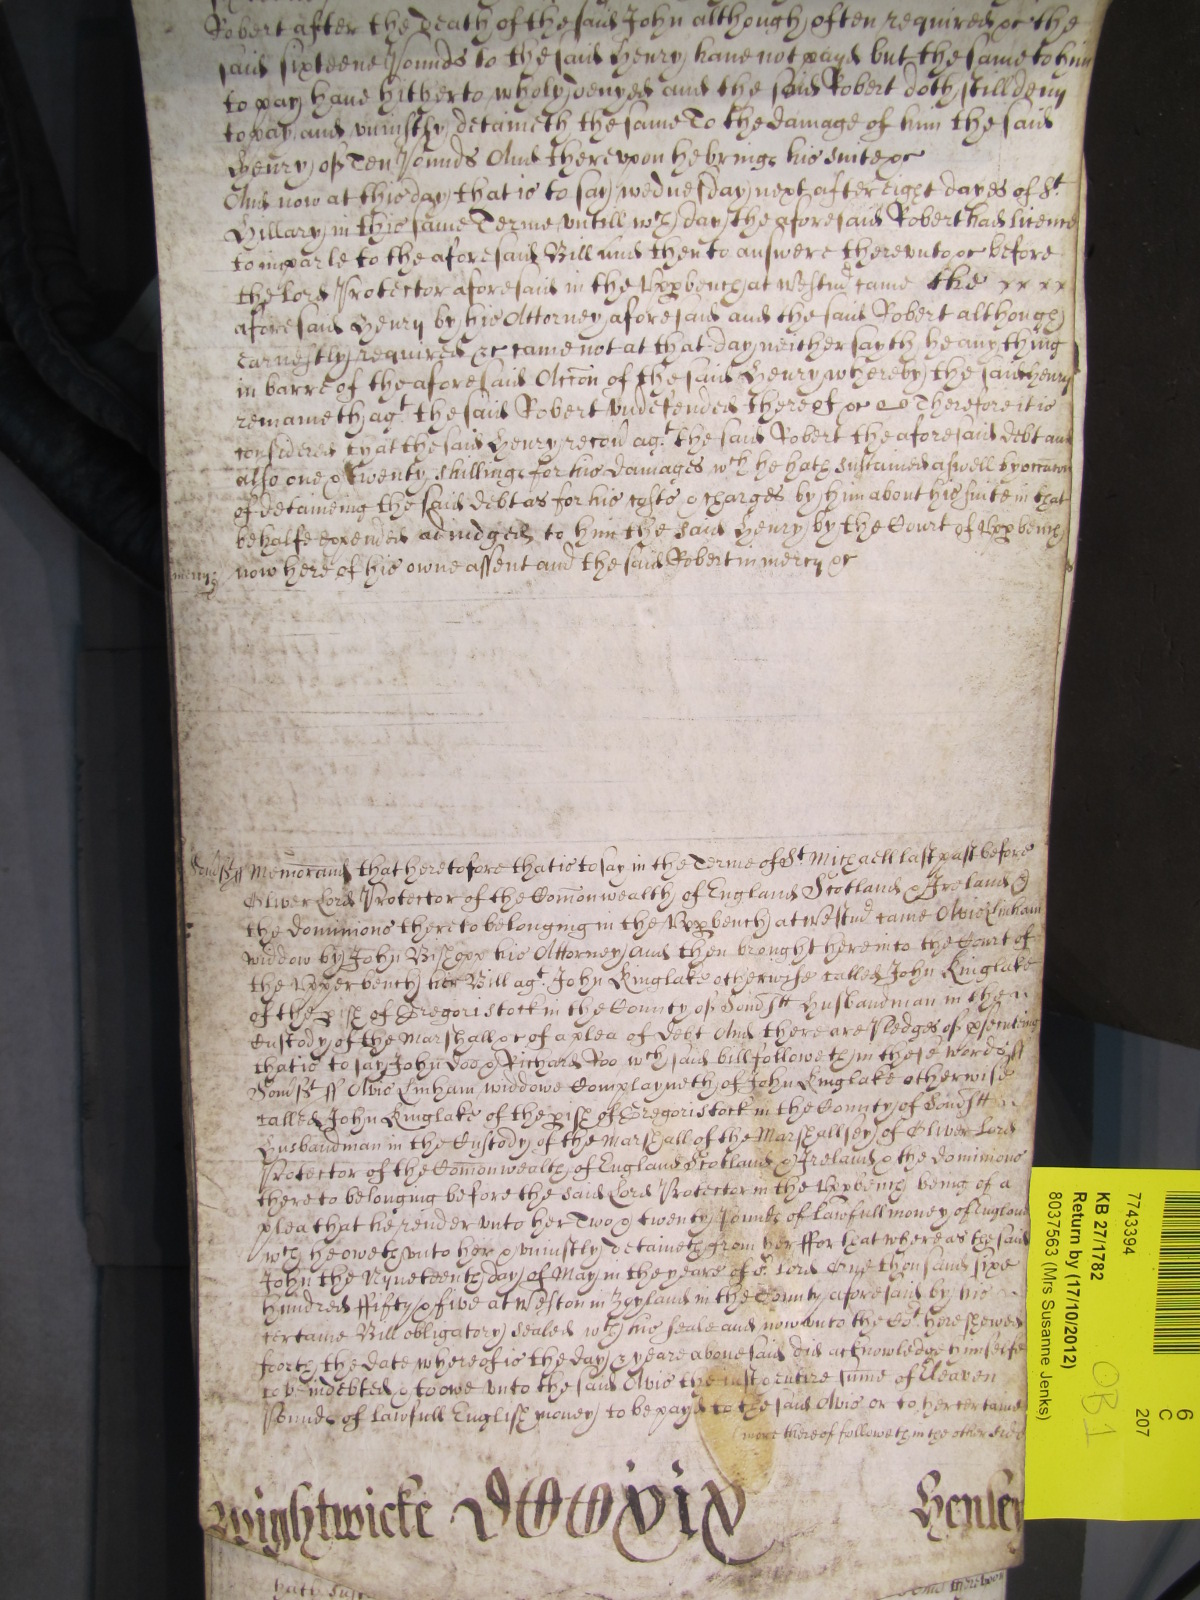 Robert after the death of the said John although often required &c the
said sixteene Pounds to the said Henry have not payd but the same to him
to pay have hitherto wholy denyed and the said Robert doth still deny
to pay and uniustly detaineth the same To the damage of him the said
Henry of Ten Pounds And thereupon he brings his suite &c
And now at this day that is to say wednesday next after eight dayes of St
Hillary in this same Terme untill wch day the aforesaid Robert had licence
to imparle to the aforesaid Bill and then to answere thereunto &c before
the Lord Protector aforesaid in the Upp bench at Westmr came the
aforesaid Henry by his Attorney aforesaid and the said Robert although
earnestly required &c came not at that day neither sayth he any thing
in barre of the aforesaid Accon of the said Henry whereby the said Henry
remaineth agt the said Robert undefended thereof &c Therefore it is
considered that the said Henry recou agt the said Robert the aforesaid debt and
also one & twenty shillings for his damages wch he hath sustained aswell by occacon
of detaineing the said debt as for his costs & charges by him about his suite in that
behalfe expended adiudged to him the said Henry by the Court of Upp bench
now here of his owne assent and the said Robert in mercy &c
mercy
Somst ss Memorand that heretofore that is to say in the Terme of St Michaell last past before
Oliver Lord Protector of the Comonwealth of England Scotland & Ireland &
the dominions thereto belonging in the Upp bench at Westmr came Avis Linham
widdow by John Bishopp his Attorney and then brought here into the Court of
the Upper bench her Bill agt John Kinglake otherwise called John Kinglake
of the pish of Gregoristock in the County of Somst Husbandman in the
Custody of the Marshall &c of a plea of debt And there are Pledges of psecuting
that is to say John Doo & Richard Roo wch said bill followeth in these words ss
Somst ss Avis Linham widdowe Complayneth of John Kinglake otherwise
called John Kinglake of the pish of Gregoristock in the County of Somst
Husbandman in the Custody of the Marshall of the Marshallsey of Oliver Lord
Protector of the Comonwealth of England Scotland & Ireland & the dominions
there to belonging before the said Lord Protector in the Upp bench being of a
plea that he render unto her Two & twenty Pounds of lawfull money of England
wch he oweth unto her & uniustly detaineth from her ffor that whereas the said
John the Nyneteenth day of May in the yeare of or Lord One thousand sixe
hundred ffifty & five at Weston in Zoyland in the County aforesaid by his
certaine Bill obligatory sealed wth his seale and now unto the Cot here shewed
forth the date whereof is the day & yeare abovesaid did acknowledge himselfe
to be indebted & to owe unto the said Avis the iust & entire summe of Eleaven
Pounds of lawfull English money to be payd to the said Avis or to her certaine
more thereof followeth in the other side
Wightwicke DCCCCXIX Henley
6
C
207
7743394
KB 27/1782
Return by (17/10/2012)
8037563 (Mrs Susanne Jenks)
OB1